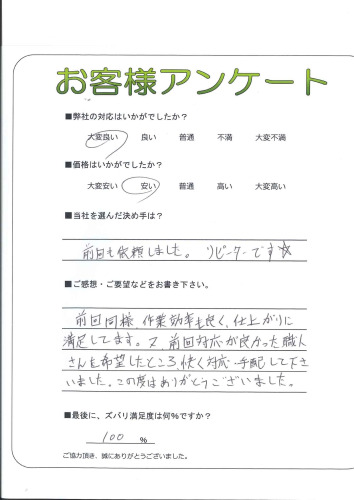 お客様アンケート
■弊社の対応はいかがでしたか？
大変良い 良い 普通 不満 大変不満
■価格はいかがでしたか？
大変安い 安い 普通 高い 大変高い
■当社を選んだ決め手は？
前回も依頼しました。 リピーターです☆
■ご感想・ご要望などをお書き下さい。
前回同様、作業効率も良く、仕上がりに
満足してます。又、前回対応が良かった職人
さんを希望したところ、快く対応・手配して下さ
いました。この度はありがとうございました。
■最後に、ズバリ満足度は何%ですか？
100 %
ご協力頂き、誠にありがとうございました。